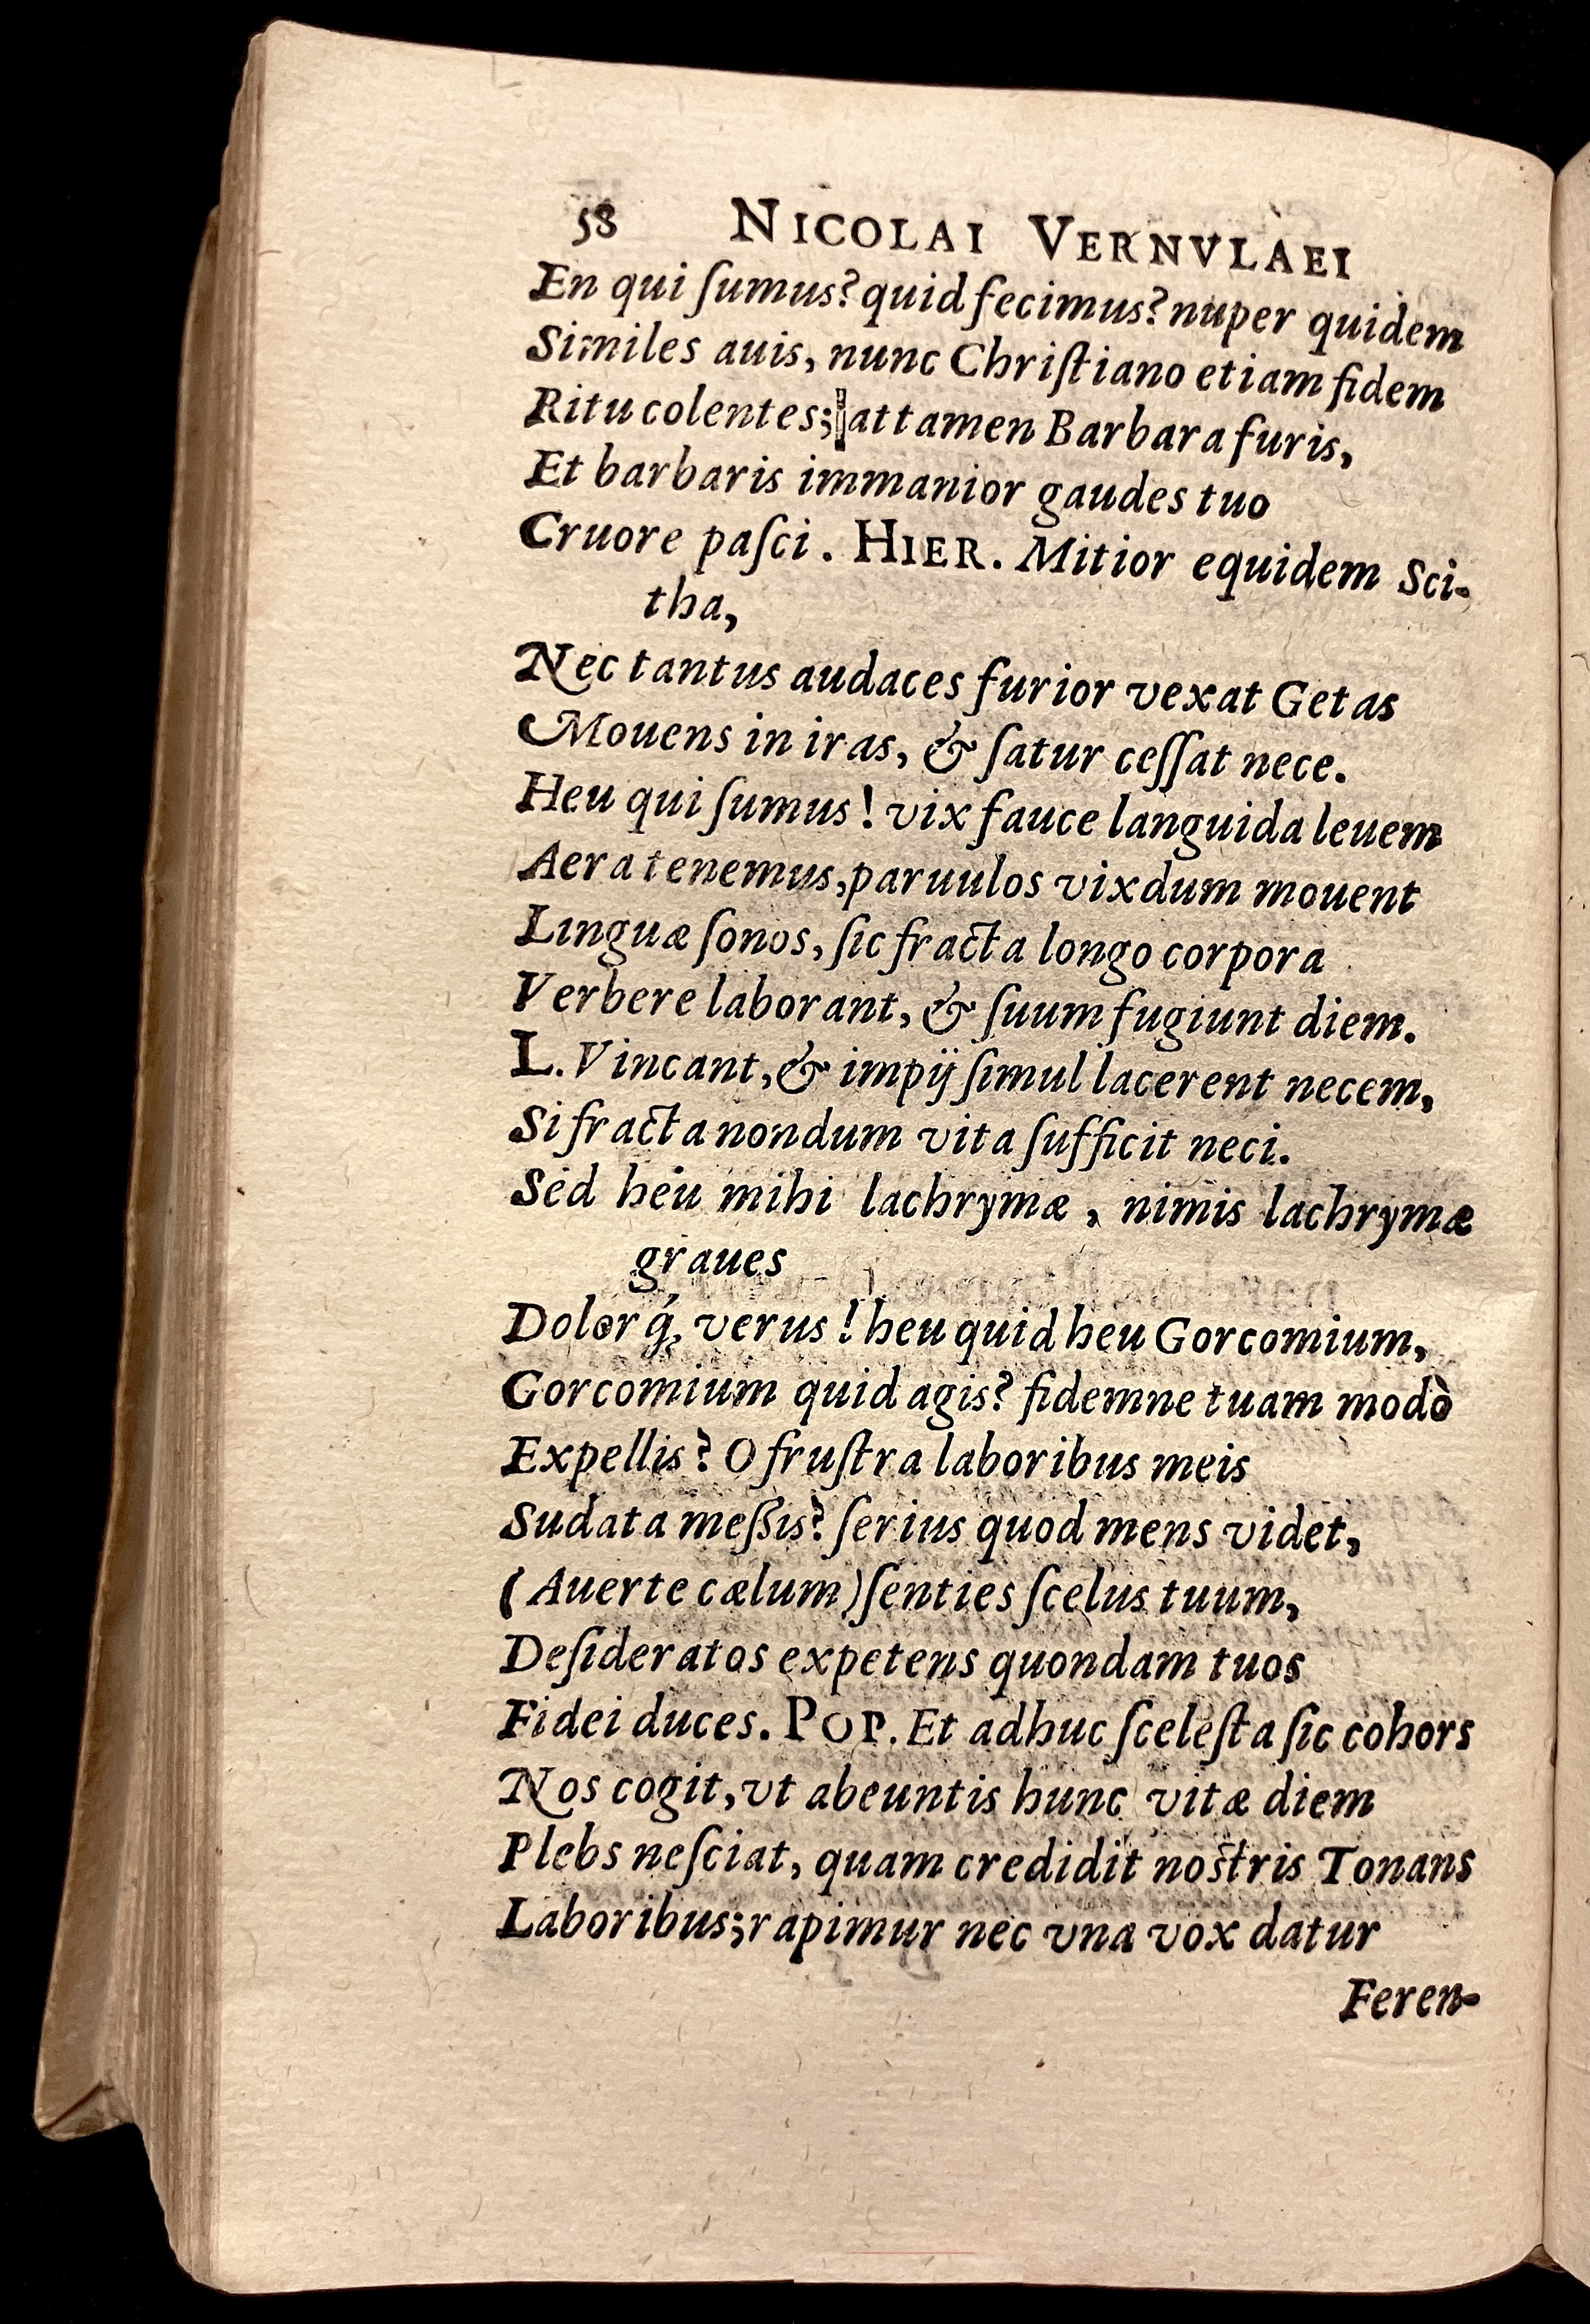 58 NICOLAI VERNVLAEI
En qui ſumus? quid fecimus? nuper quidem
Similes auis, nunc Chriſtiano etiam fidem
Ritu colentes; attamen Barbara furis,
Et barbaris immanior gaudes tuo
Cruore paſci. HIER. Mitior equidem Sci-
tha,
Nec tantus audaces furior vexat Getas
Mouens in iras, & ſatur ceſſat nece.
Heu qui ſumus! vix fauce languida leuem
Aera tenemus, paruulos vixdum mouent
Linguæ ſonos, ſic fracta longo corpora
Verbere laborant, & ſuum fugiunt diem.
L. Vincant, & impij ſimul lacerent necem,
Si fracta nondum vita ſufficit neci.
Sed heu mihi lachrymæ, nimis lachrymæ
graues
Dolorq́; verus! heu quid heu Gorcomium,
Gorcomium quid agis? fidemne tuam modò
Expellis? O fruſtra laboribus meis
Sudata meſſis? ſerius quod mens videt,
(Auerte cælum) ſenties ſcelus tuum,
Deſideratos expetens quondam tuos
Fidei duces. POP. Et adhuc ſceleſta ſic cohors
Nos cogit, vt abeuntis hunc vitæ diem
Plebs neſciat, quam credidit noſtris Tonans
Laboribus; rapimur nec vna vox datur
Feren-